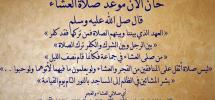 حان الآن موعد صلاة العشاء
قال صل الله عليه وسلم
"العهد الذي بيننا وبينهم الصلاة فمن تركها فقد كفر"
"بين الرجل وبين الشرك والكفر ترك الصلاة"
"من صلى العشاء في جماعة فكأنما قام نصف الليل"
"ليس صلاة أثقل على المنافقين من الفجر والعشاء ولو يعلمون ما فيهما لأتوهما ولو حبوا..."
"بشر المشائين في الظلم إلى المساجد بالنور التام يوم القيامة"